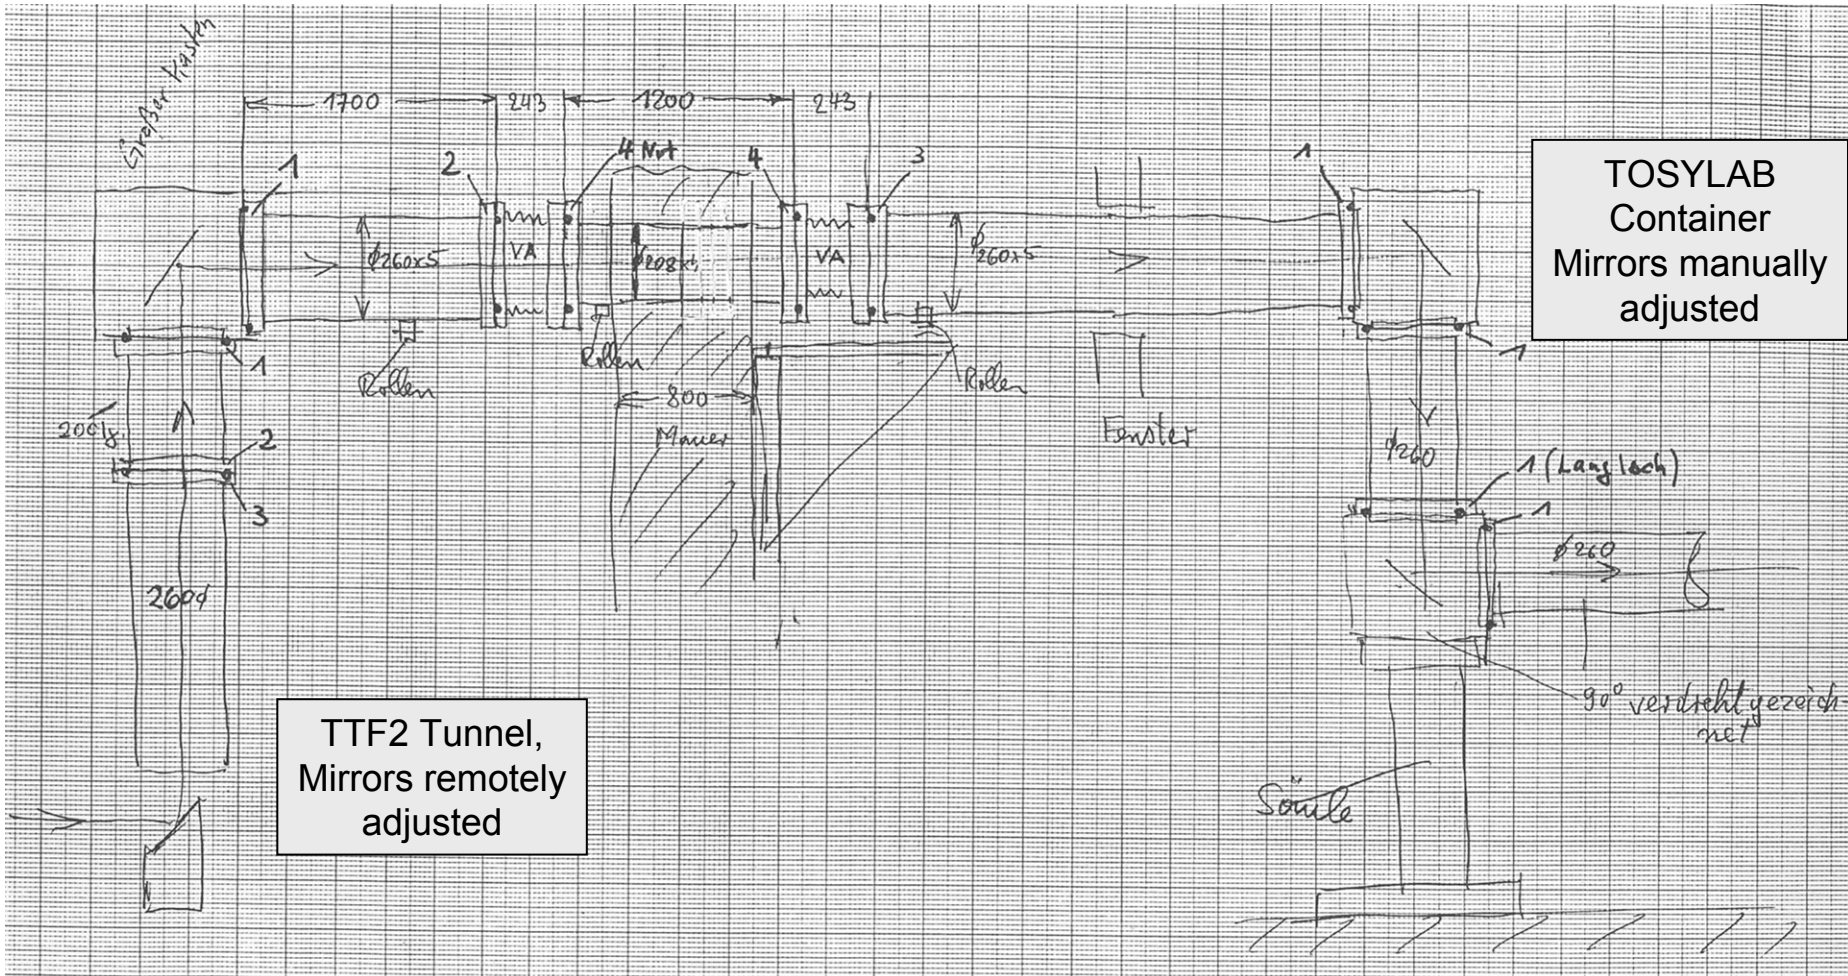 Großer Kasten
1700
243
1200
243
1
2
4 Nut
4
3
1
TOSYLAB
Container
Mirrors manually
adjusted
ϕ260x5
VA
VA
ϕ260x5
1
Rollen
Rollen
Rollen
1
800
Mauer
Fenster
2
3
260ϕ
ϕ260
1 (Langloch)
1
ϕ260
90° verdreht gezeich-
net
Säule
TTF2 Tunnel,
Mirrors remotely
adjusted